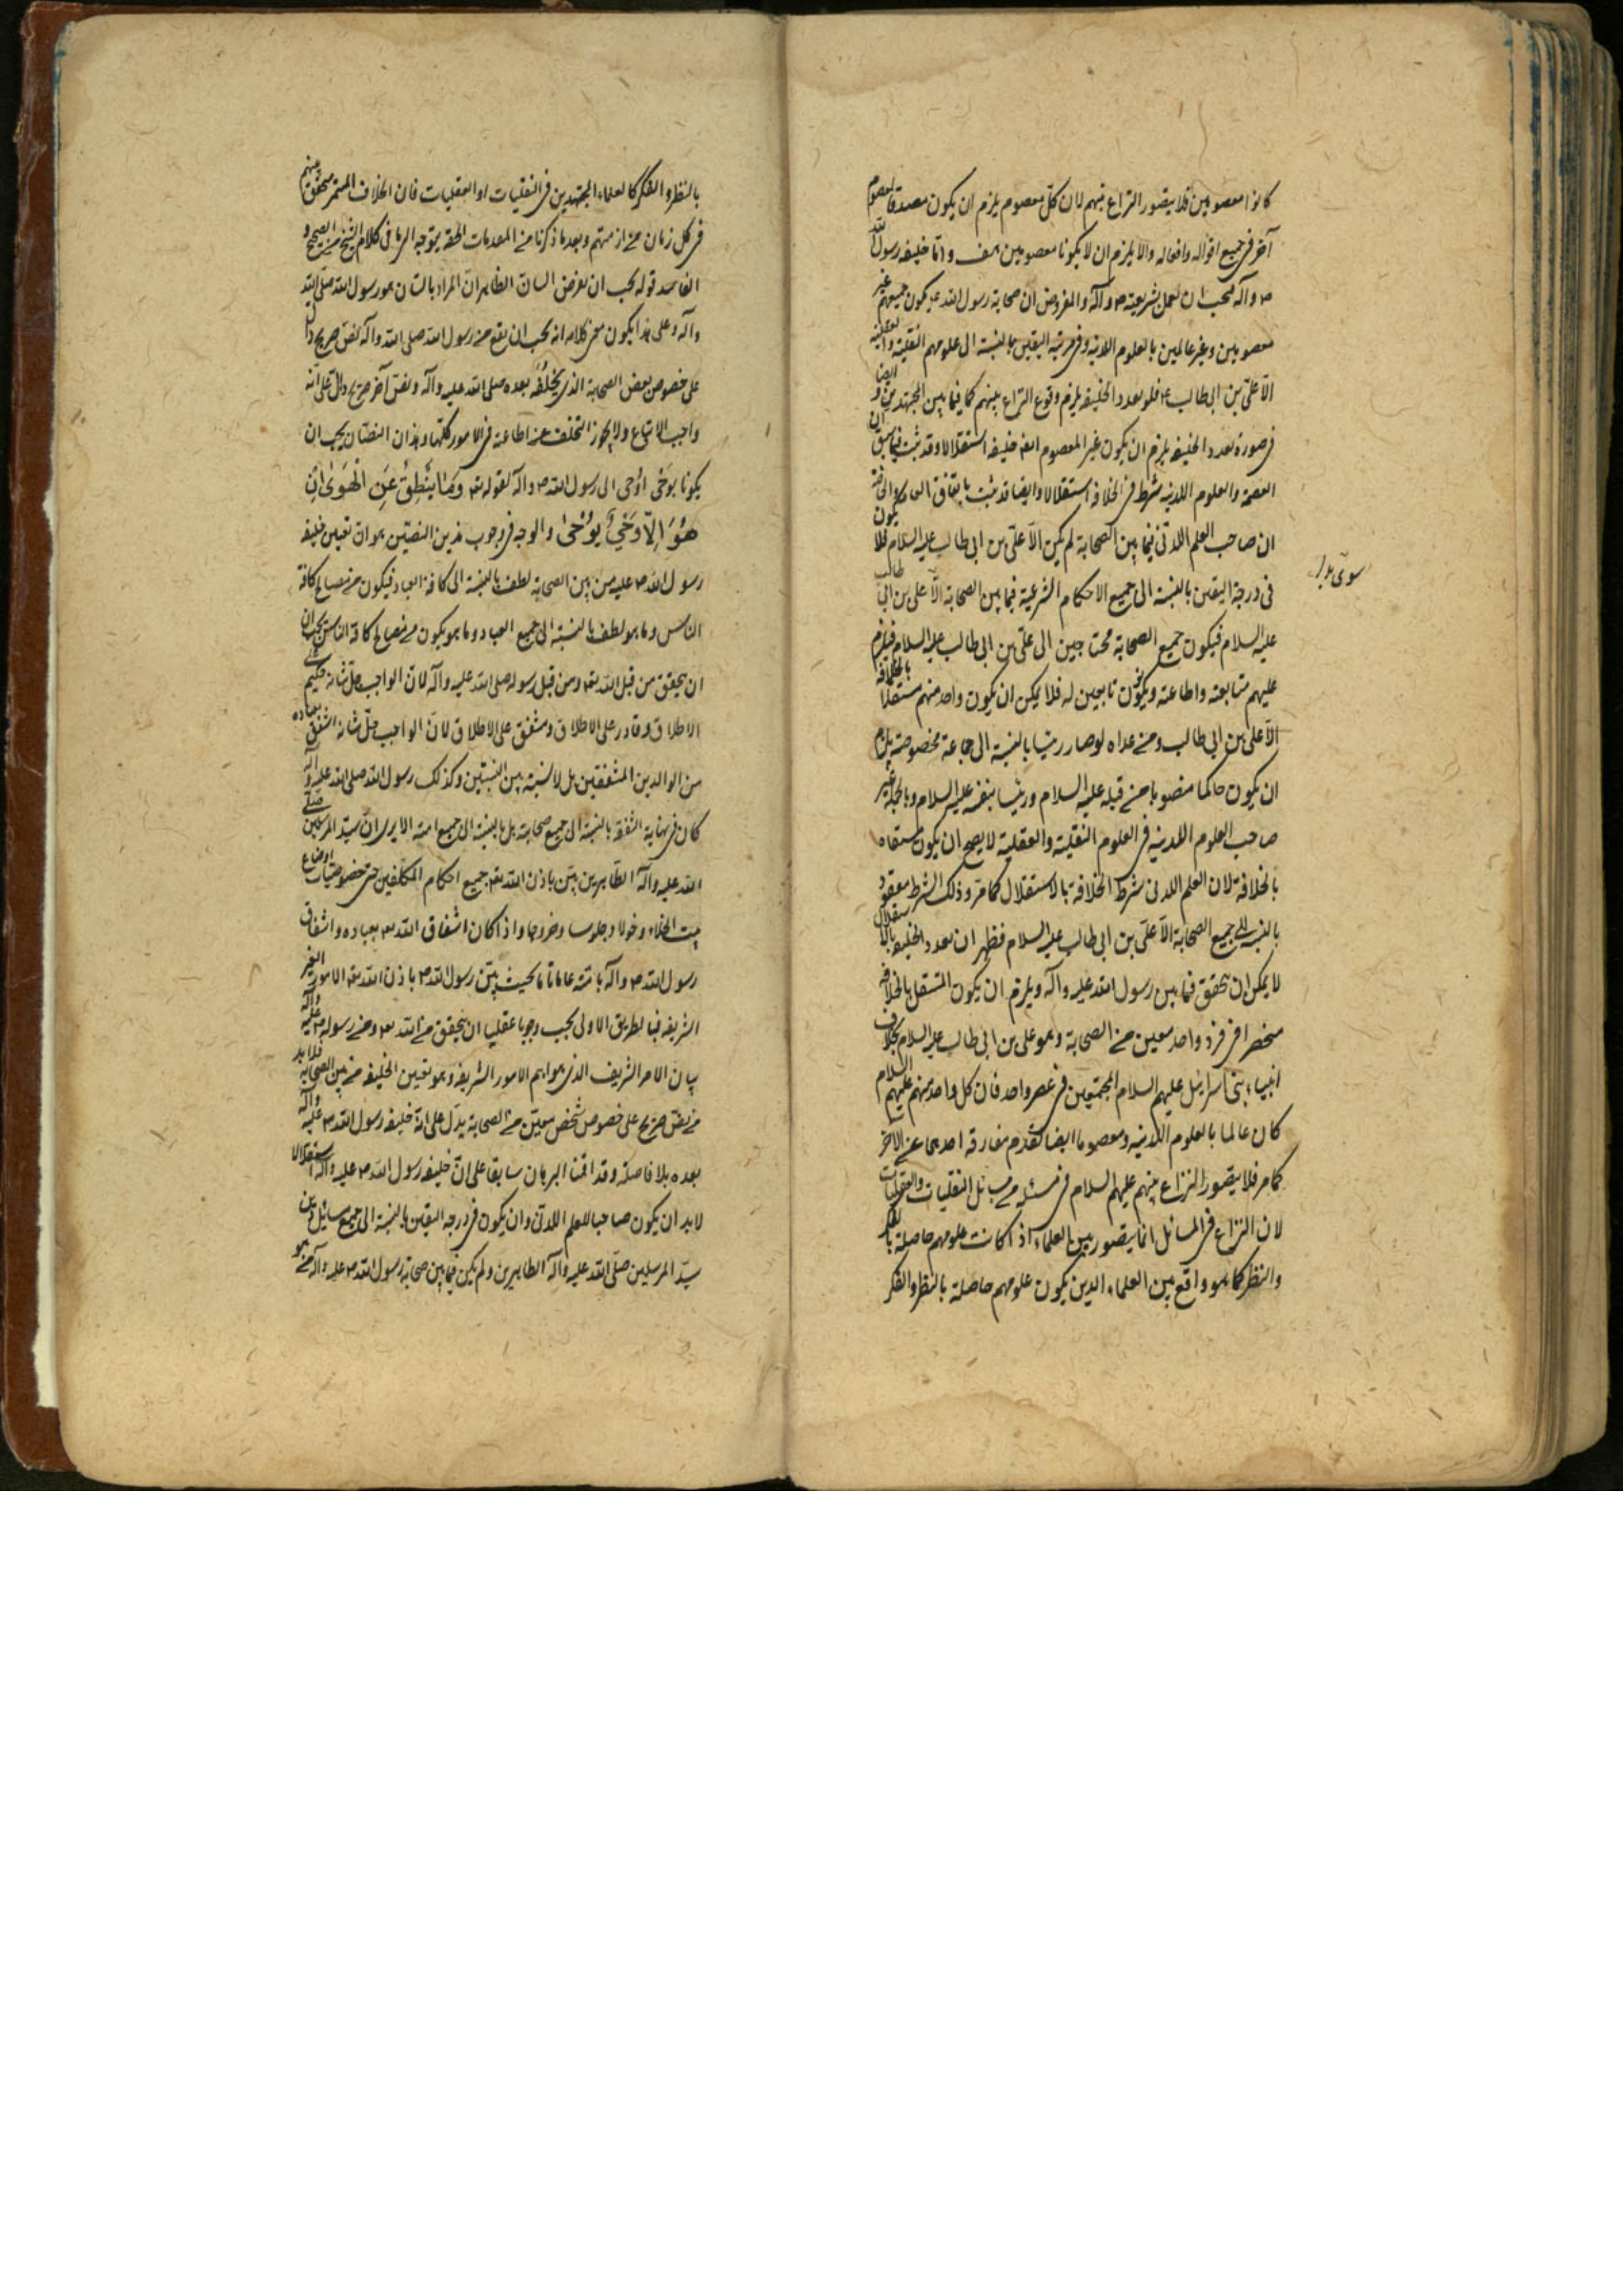 كانوا معصومين فلا يتصور النزاع بينهم لان كل معصوم يلزم ان يكون مصدقا لمعصوم
آخر فى جميع اقواله وافعاله والا يلزم ان لا يكونا معصومين هف واما خليفه رسول الله
ص وآله فيجب ان يعمل بشريعته ص وآله والمفروض ان صحابة رسول الله ص يكون جميعهم غير
معصومين وغير عالمين بالعلوم اللدنيه وفى مرتبه اليقين بالنسبة الى علومهم النقلية والعقلية
الا على بن ابى طالب ع فلو تعدد الخليفه يلزم وقوع النزاع بينهم كما فيما بين المجتهدين و ايضا
فى صورة تعدد الخليفه يلزم ان يكون غير المعصوم ايضا خليفه استقلالا وقد ثبت فيما سبق ان
العصمة والعلوم اللدنيه شرط فى الخلافه استقلالا وايضا قد ثبت باتفاق العامة والخاصة
ان صاحب العلم اللدنى فيما بين الصحابة لم يكن الا على بن ابى طالب عليه السلام فلا يكون
فى درجة اليقين بالنسبة الى جميع الاحكام الشرعية فيما بين الصحابة الا على بن ابى طالب
عليه السلام فيكون جميع الصحابة محتاجين الى على بن ابى طالب عليه السلام فيلزم
عليهم متابعته واطاعته ويكون تابعين له فلا يمكن ان يكون واحد منهم مستقلا بالخلافه
الا على بن ابى طالب ومن عداه لو صار رئيسا بالنسبة الى جماعة مخصوصة يلزم
ان يكون حاكما منصوبا من قبله عليه السلام ورئيسا بنفسه عليه السلام وبالجمله غير
صاحب العلوم اللدنيه فى العلوم النقلية والعقلية لا يصح ان يكون مستقلا
بالخلافة لان العلم اللدنى شرط الخلافة بالاستقلال كما مر وذلك الشرط مفقود
بالنسبة الى جميع الصحابة الا على بن ابى طالب عليه السلام فظهر ان تعدد الخليفه بالاستقلال
لا يمكن ان يتحقق فيما بين رسول الله عليه وآله ويلزم ان يكون المستقل بالخلافه
منحصرا فى فرد واحد معين من الصحابة وهو على بن ابى طالب عليه السلام بخلاف
انبياء بنى اسرائيل عليهم السلام المجتمعين فى عصر واحد فان كل واحد منهم عليهم السلام
كان عالما بالعلوم اللدنيه ومعصوما ايضا لعدم مفارقة احدهما عن الآخر
كما مر فلا يتصور النزاع بينهم عليهم السلام فى مسئله من مسائل النقليات والعقليات
لان النزاع فى المسائل انما يتصور بين العلماء اذا كانت علومهم حاصلة بالفكر
والنظر كما هو واقع بين العلماء الذين يكون علومهم حاصلة بالنظر والفكر
بالنظر والفكر كالعلماء المجتهدين فى النقليات او العقليات فان الخلاف المستمر متحقق بينهم
فى كل زمان من ازمنتهم وبعد ما ذكرنا من المقدمات الحقه يتوجه الى ما فى كلام الشيخ من الصحيح و
الفاسد قوله يجب ان يفرض السان الظاهر ان المراد بالسان هو رسول الله صلى الله
وآله وعلى هذا يكون معنى كلامه انه يجب ان يقع من رسول الله صلى الله وآله نص صريح دال
على خصوص بعض الصحابة الذى يخلفه بعده صلى الله عليه وآله ونص آخر صريح دال على انه
واجب الاتباع ولا يجوز التخلف عن اطاعته فى الامور كلها وهذان النصان يجب ان
يكونا بوحى اوحى الى رسول الله ص وآله لقوله تعـ وَمَا يَنْطِقُ عَنِ الْهَوَى اِنْ
هُوَ اِلّا وَحْيٌ يُوْحَى والوجه فى وجوب هذين النصين هو ان تعيين خليفه
رسول الله ص عليه من بين الصحابة لطف بالنسبة الى كافة العباد فيكون من مصالح كافة
الناس وما هو لطف بالنسبة الى جميع العباد وما هو يكون من مصالح كافة الناس يجب ان
ان يتحقق من قبل الله تعـ ومن قبل رسوله صلى الله عليه وآله لان الواجب جل شانه حكيم على
الاطلاق وقادر على الاطلاق ومشفق على الاطلاق لان الواجب جل شانه اشفق بعباده
من الوالدين المشفقين بل لا نسبة بين النسبتين وكذلك رسول الله صلى الله عليه وآله
كان فى نهاية الشفقة بالنسبة الى جميع صحابته بل بالنسبة الى جميع امته الا يرى ان سيد المرسلين صلى
الله عليه وآله الطاهرين بين باذن الله تعـ جميع احكام المكلفين حتى خصوصيات اوضاع
بيت الخلاء دخولا وجلوسا وخروجا واذا كان اشفاق الله تعـ بعباده واشفاق
رسول الله ص وآله بامته عاما تاما بحيث بين رسول الله ص باذن الله تعـ الامور الغير
الشريفه فبالطريق الاولى يجب وجوبا عقليا ان يتحقق من الله تعـ ومن رسوله ص عليه وآله
بيان الامر الشريف الذى هو اهم الامور الشريفه وهو تعيين الخليفه من بين الصحابة فلابد
من نص صريح على خصوص شخص معين من الصحابة يدل على انه خليفه رسول الله ص عليه وآله
بعده بلا فاصلة وقد اقمنا البرهان سابقا على ان خليفه رسول الله ص عليه وآله استقلالا
لابد ان يكون صاحبا للعلم اللدنى وان يكون فى درجة اليقين بالنسبة الى جميع مسائل دين
سيد المرسلين صلى الله عليه وآله الطاهرين ولم يكن فيما بين صحابة رسول الله ص عليه وآله من هو